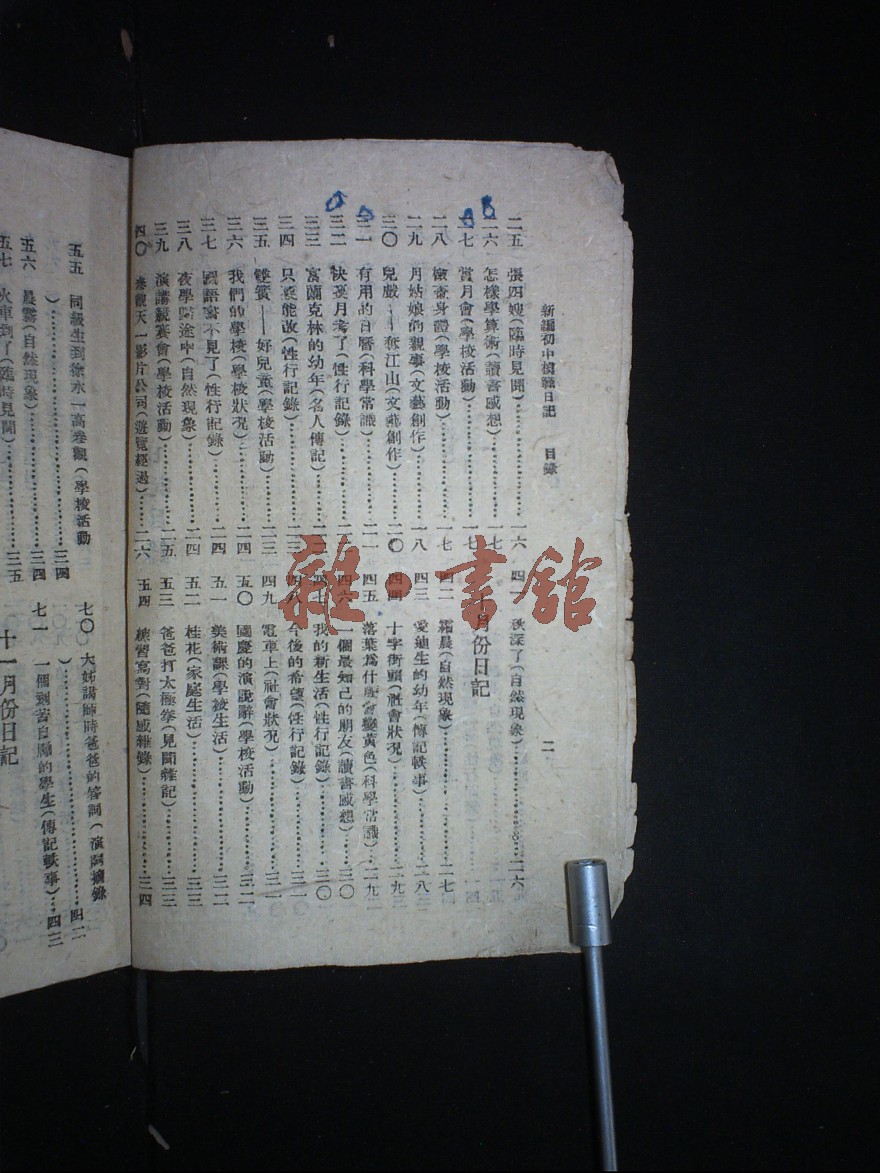 新編初中模範日記 目錄 二
二五 張四嫂(臨時見聞)……一六
二六 怎樣學算術(讀書感想)……一七
二七 賞月會(學校活動)……一七
二八 檢查身體(學校活動)……一七
二九 月姑娘的親事(文藝創作)……一八
三〇 兒戲——奪江山(文藝創作)……二〇
三一 有用的日曆(科學常識)……二一
三二 快要月考了(性行記錄)
三三 富蘭克林的幼年(名人傳記)
三四 只要能改(性行記錄)……二三
三五 雙簧——好兒童(學校活動)……二三
三六 我們的學校(學校狀況)……二四
三七 國語書不見了(性行記錄)……二四
三八 夜學歸途中(自然現象)……二四
三九 演講競賽會(學校活動)……二五
四〇 參觀天一影片公司(遊覽經過)……二六
四一 秋深了(自然現象)……二六
十月份日記
四二 霜晨(自然現象)……二七
四三 愛迪生的幼年(傳記軼事)……二八
四四 十字街頭(社會狀況)……二九
四五 落葉為什麼會變黃色(科學常識)……二九
四六 一個最知己的朋友(讀書感想)……三〇
四七 我的新生活(性行記錄)……三〇
四八 今後的希望(性行記錄)……三一
四九 電車上(社會狀況)……三一
五〇 國慶的演說辭(學校活動)……三二
五一 美術課(學校生活)……三二
五二 桂花(家庭生活)……三三
五三 爸爸打太極拳(見聞雜記)……三三
五四 練習寫對(隨感雜錄)……三四
五五 同級生到徐水一高參觀(學校活動
)……三四
五六 晨霧(自然現象)……三四
五七 火車到了(臨時見聞)……三五
七〇 大姊講師時爸爸的答詞(演詞摘錄
)……四二
七一 一個刻苦自勵的學生(傳記軼事)……四三
十一月份日記
雜·書館